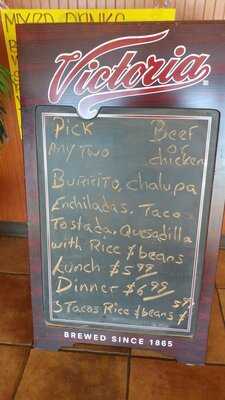 MIXED DRINKS
Victoria
Pick Beef
Any Two or
chicken
Burrito, chalupa
Enchiladas, Taco
Tostada, Quesadilla
with Rice & beans
Lunch $5.99
Dinner $6.99
3 Tacos Rice & beans $ 5.99
BREWED SINCE 1865